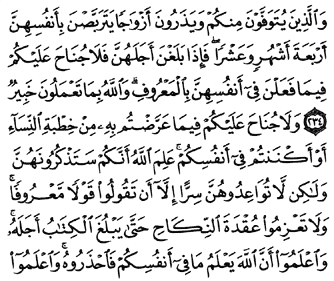 وَٱلَّذِينَ يُتَوَفَّوۡنَ مِنكُمۡ وَيَذَرُونَ أَزۡوَٰجٗا يَتَرَبَّصۡنَ بِأَنفُسِهِنَّ
أَرۡبَعَةَ أَشۡهُرٖ وَعَشۡرٗاۖ فَإِذَا بَلَغۡنَ أَجَلَهُنَّ فَلَا جُنَاحَ عَلَيۡكُمۡ
فِيمَا فَعَلۡنَ فِيٓ أَنفُسِهِنَّ بِٱلۡمَعۡرُوفِۗ وَٱللَّهُ بِمَا تَعۡمَلُونَ خَبِيرٞ
٢٣٤ وَلَا جُنَاحَ عَلَيۡكُمۡ فِيمَا عَرَّضۡتُم بِهِۦ مِنۡ خِطۡبَةِ ٱلنِّسَآءِ
أَوۡ أَكۡنَنتُمۡ فِيٓ أَنفُسِكُمۡۚ عَلِمَ ٱللَّهُ أَنَّكُمۡ سَتَذۡكُرُونَهُنَّ
وَلَٰكِن لَّا تُوَاعِدُوهُنَّ سِرًّا إِلَّآ أَن تَقُولُواْ قَوۡلٗا مَّعۡرُوفٗاۚ
وَلَا تَعۡزِمُواْ عُقۡدَةَ ٱلنِّكَاحِ حَتَّىٰ يَبۡلُغَ ٱلۡكِتَٰبُ أَجَلَهُۥۚ
وَٱعۡلَمُوٓاْ أَنَّ ٱللَّهَ يَعۡلَمُ مَا فِيٓ أَنفُسِكُمۡ فَٱحۡذَرُوهُۚ وَٱعۡلَمُوٓاْ